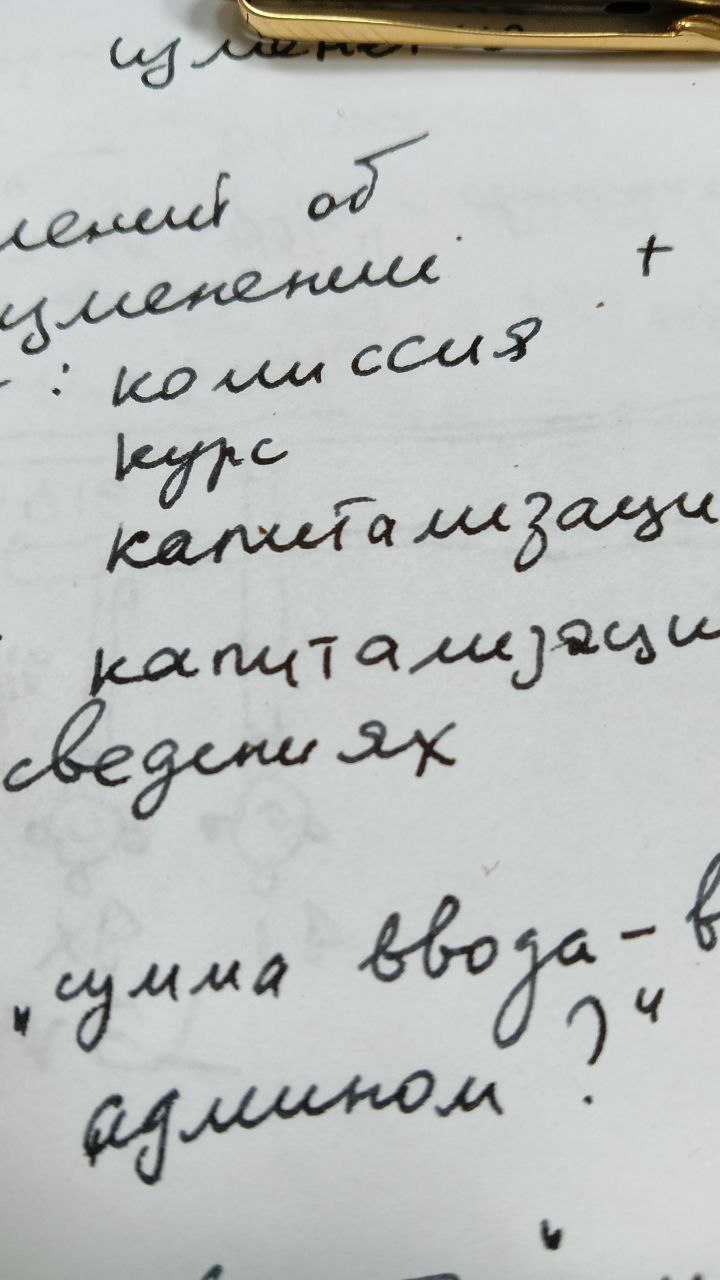 лений об
изменении +
: комиссия
курс
капитализаци
капитализаци
сведениях
„сумма ввода – в
админом ?"